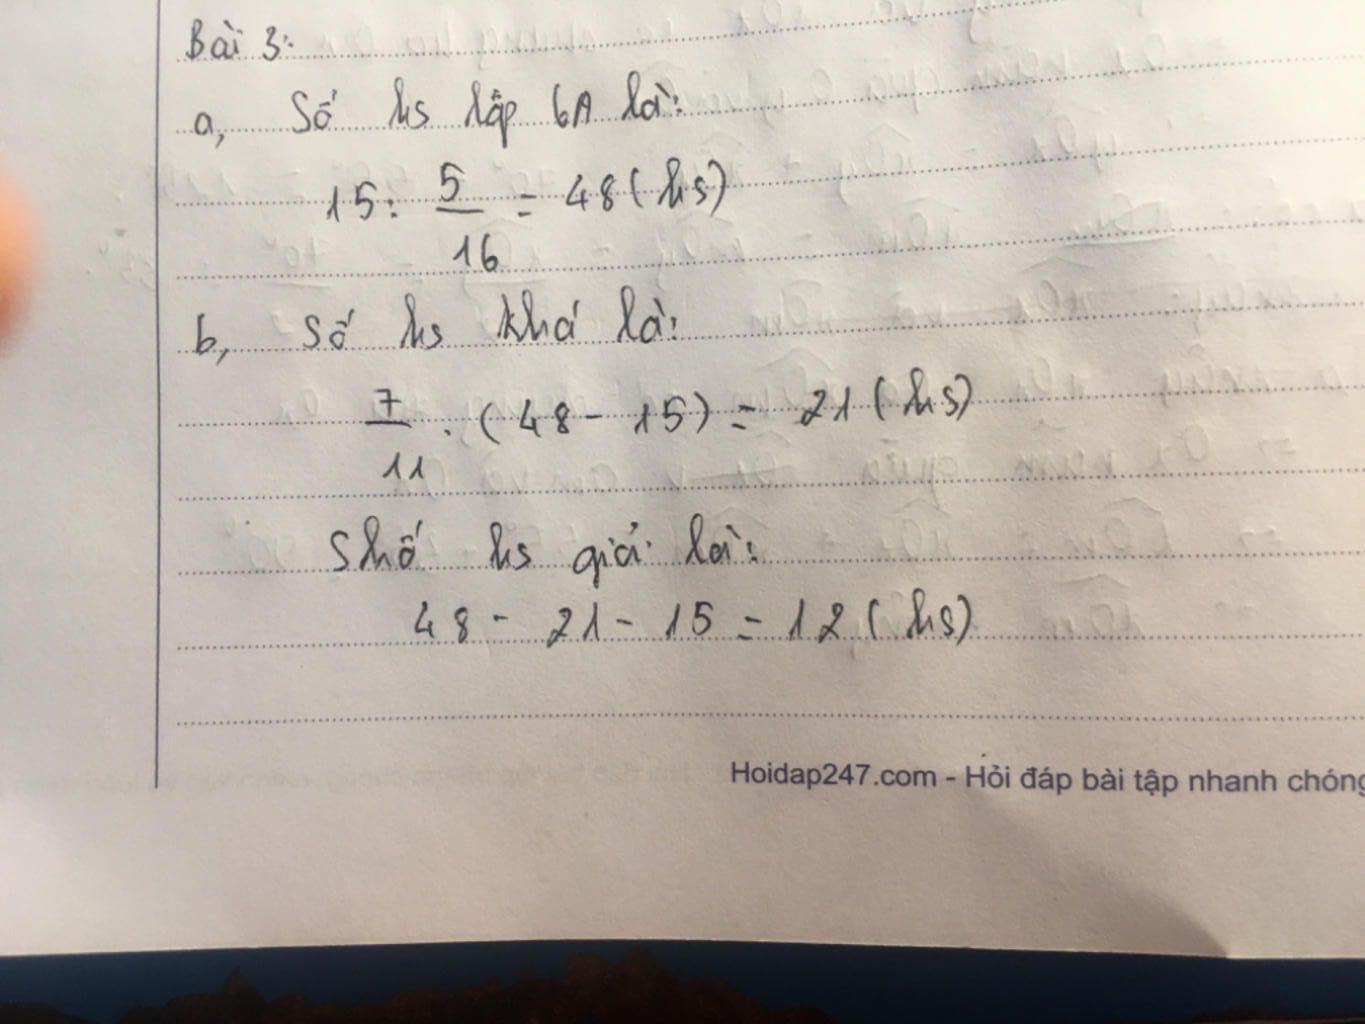 Bài 3:
a, Số hs lớp 6A là:
15 : 5/16 = 48 (hs)
b, Số hs khá là:
7/11 . (48 - 15) = 21 (hs)
Shố hs giỏi là:
48 - 21 - 15 = 12 (hs)
Hoidap247.com - Hỏi đáp bài tập nhanh chóng